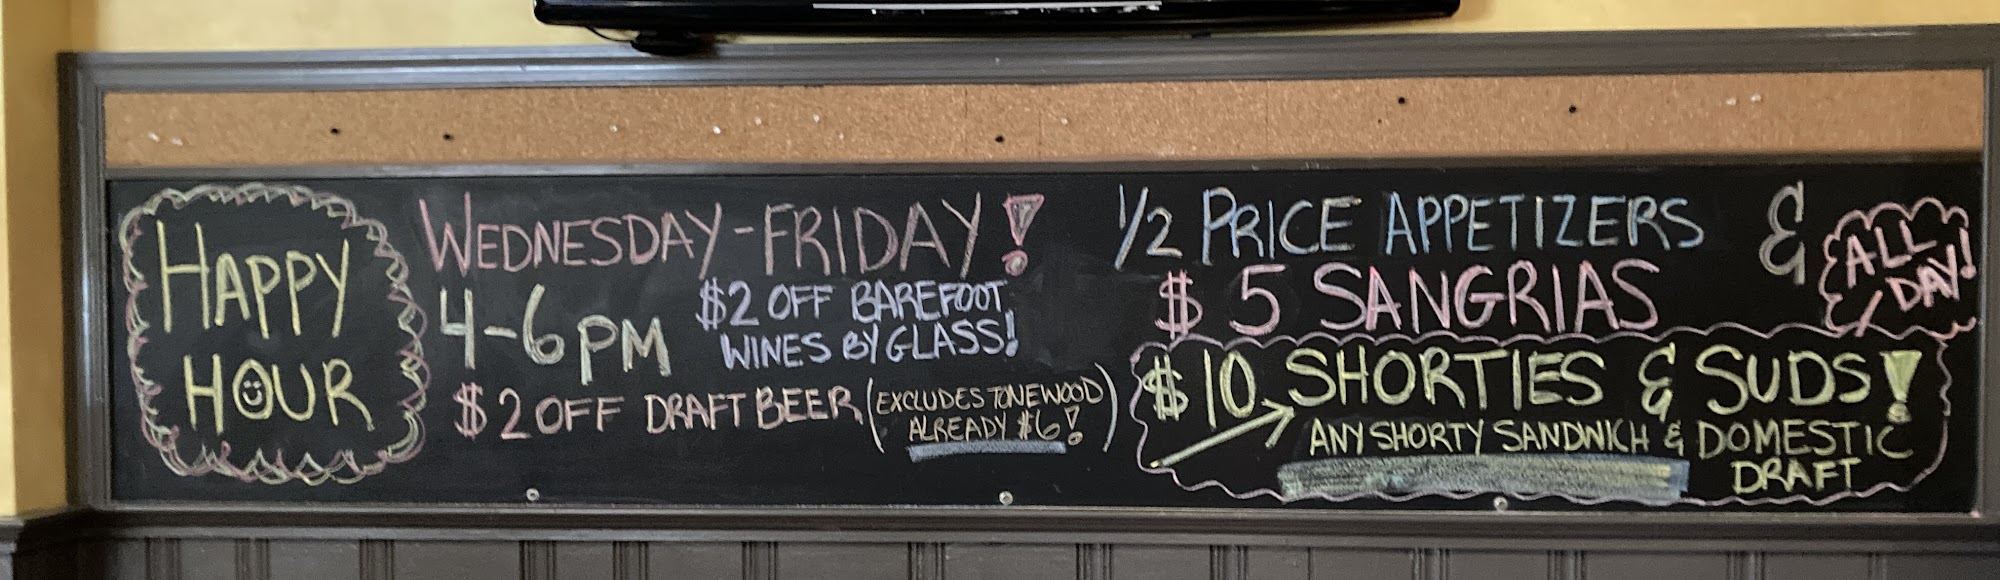 HAPPY
HOUR
WEDNESDAY-FRIDAY!
4-6PM
$2 OFF BAREFOOT
WINES BY GLASS!
$2 OFF DRAFT BEER (EXCLUDES TONEWOOD
ALREADY $6!)
1/2 PRICE APPETIZERS &
$5 SANGRIAS
ALL
DAY!
$10 SHORTIES & SUDS!
ANY SHORTY SANDWICH & DOMESTIC
DRAFT